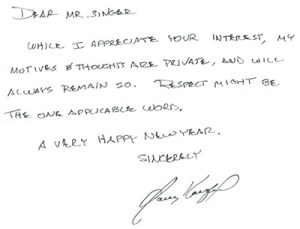 DEAR MR. SINGER
WHILE I APPRECIATE YOUR INTEREST, MY
MOTIVES & THOUGHTS ARE PRIVATE, AND WILL
ALWAYS REMAIN SO. RESPECT MIGHT BE
THE ONE APPLICABLE WORD.
A VERY HAPPY NEW YEAR.
SINCERELY